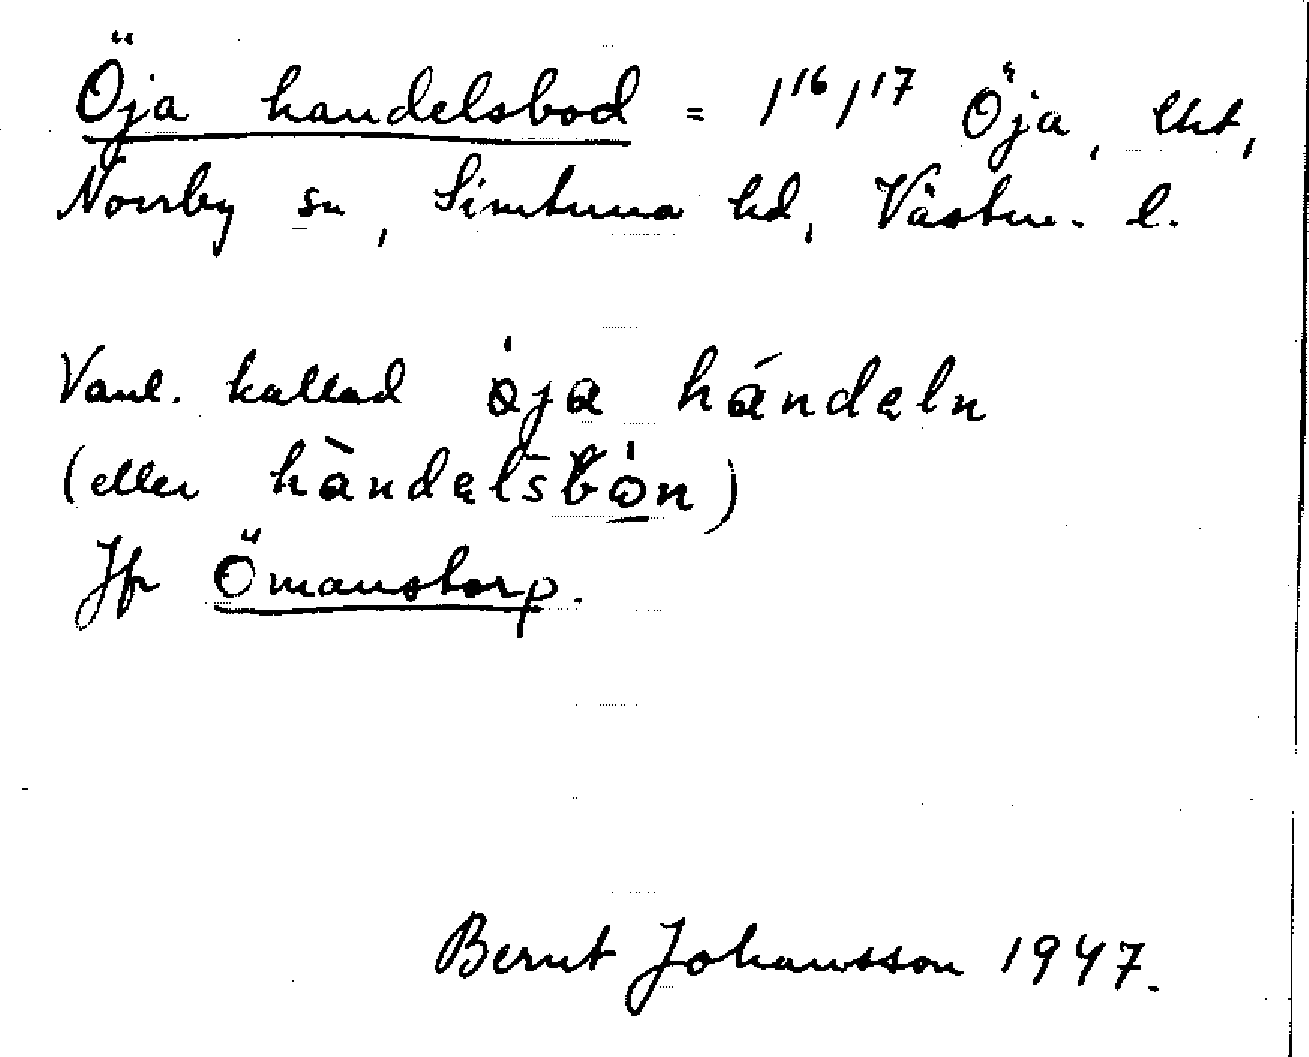 Öja handelsbod = 1¹⁶ / 1¹⁷ Öja, lht,
Norrby sn, Simtuna hd, Västm. l.
Vanl. kallad ö́ja hándeln
(eller hàndelsbón)
Jfr Ömanstorp.
Bernt Johansson 1947.